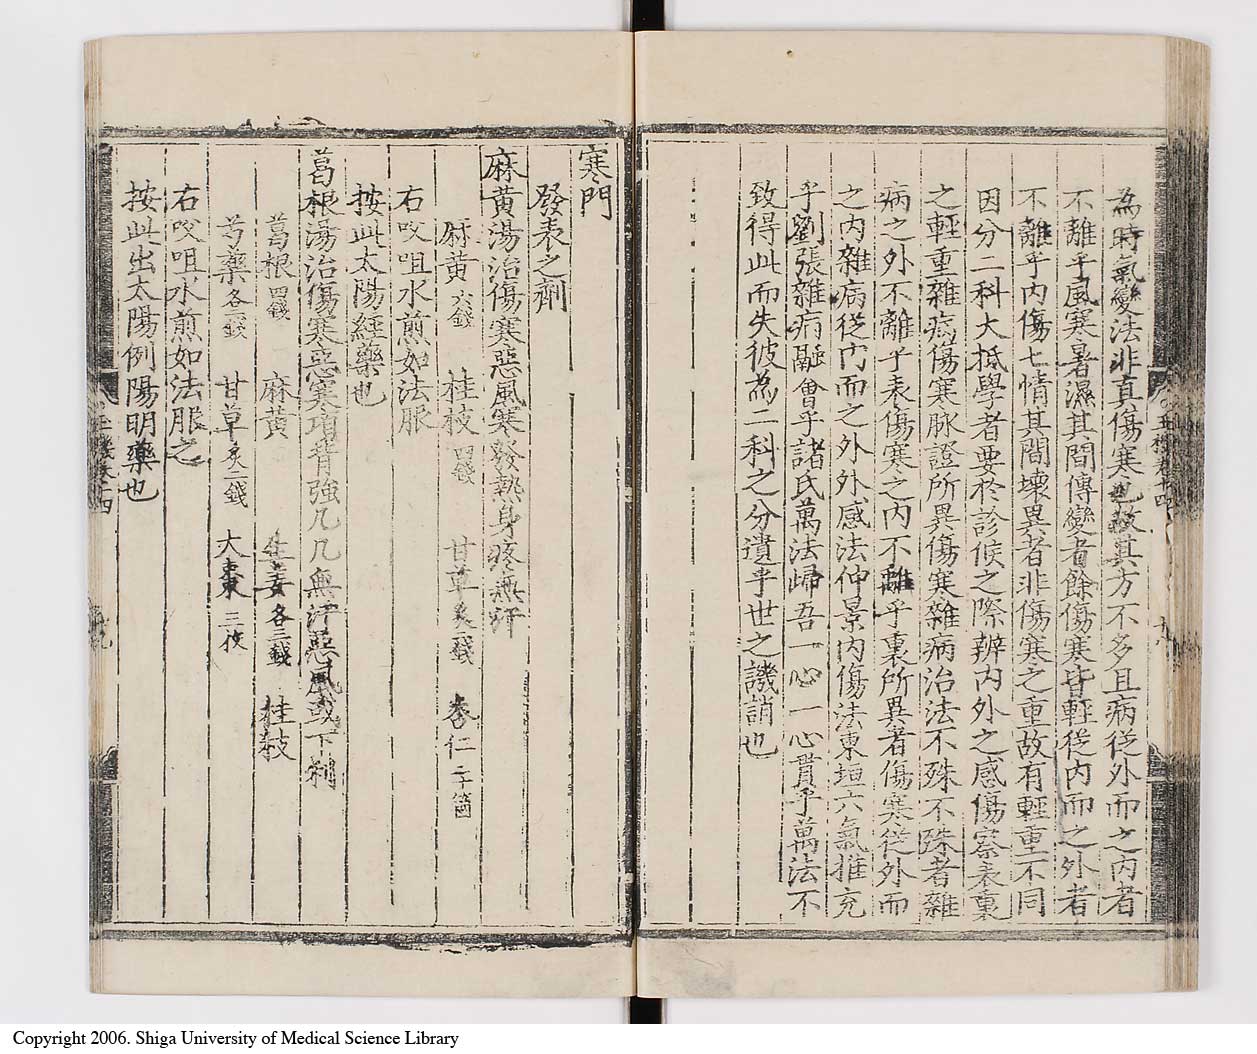 為時氣變法非真傷寒也故其方不多且病從外而之內者
不離乎風寒暑濕其間傳變者餘傷寒皆輕從內而之外者
不離乎內傷七情其間壞異者非傷寒之重故有輕重不同
因分二科大抵學者要於診候之際辨內外之感傷察表裏
之輕重雜症傷寒脉證所異傷寒雜病治法不殊不殊者雜
病之外不離乎表傷寒之內不離乎裏所異者傷寒從外而
之內雜病從內而之外外感法仲景內傷法東垣六氣推充
乎劉張雜病融會乎諸氏萬法歸吾一心一心貫乎萬法不
致得此而失彼為二科之分遺乎世之譏誚也
寒門
發表之劑
麻黃湯治傷寒惡風寒發熱身疼無汗
麻黃六錢 桂枝四錢 甘草炙二錢 杏仁二十箇
右㕮咀水煎如法服
按此太陽經藥也
葛根湯治傷寒惡寒項背強几几無汗惡風或下利
葛根四錢 麻黃 生姜各三錢 桂枝
芍藥各二錢 甘草炙二錢 大棗三枚
右㕮咀水煎如法服之
按此出太陽例陽明藥也
Copyright 2006. Shiga University of Medical Science Library